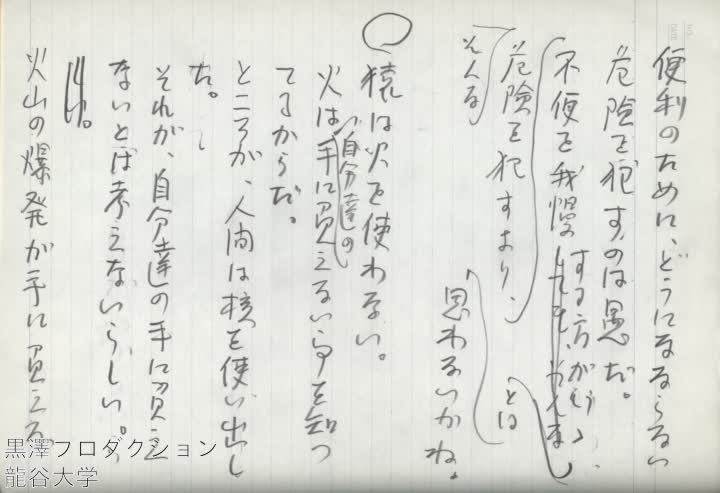 便利のために、どうにもならない
危険を犯すのは愚だ。
不便を我慢する方が
危険を犯すより、
とは
思わないかね。
○
猿は火を使わない。
火は自分達の手に負えない事を知っ
てるからだ。
ところが、人間は核を使い出し
た。
それが、自分達の手に負え
ないとは考えないらしい。
火山の爆発が手に負える
黒澤プロダクション
龍谷大学